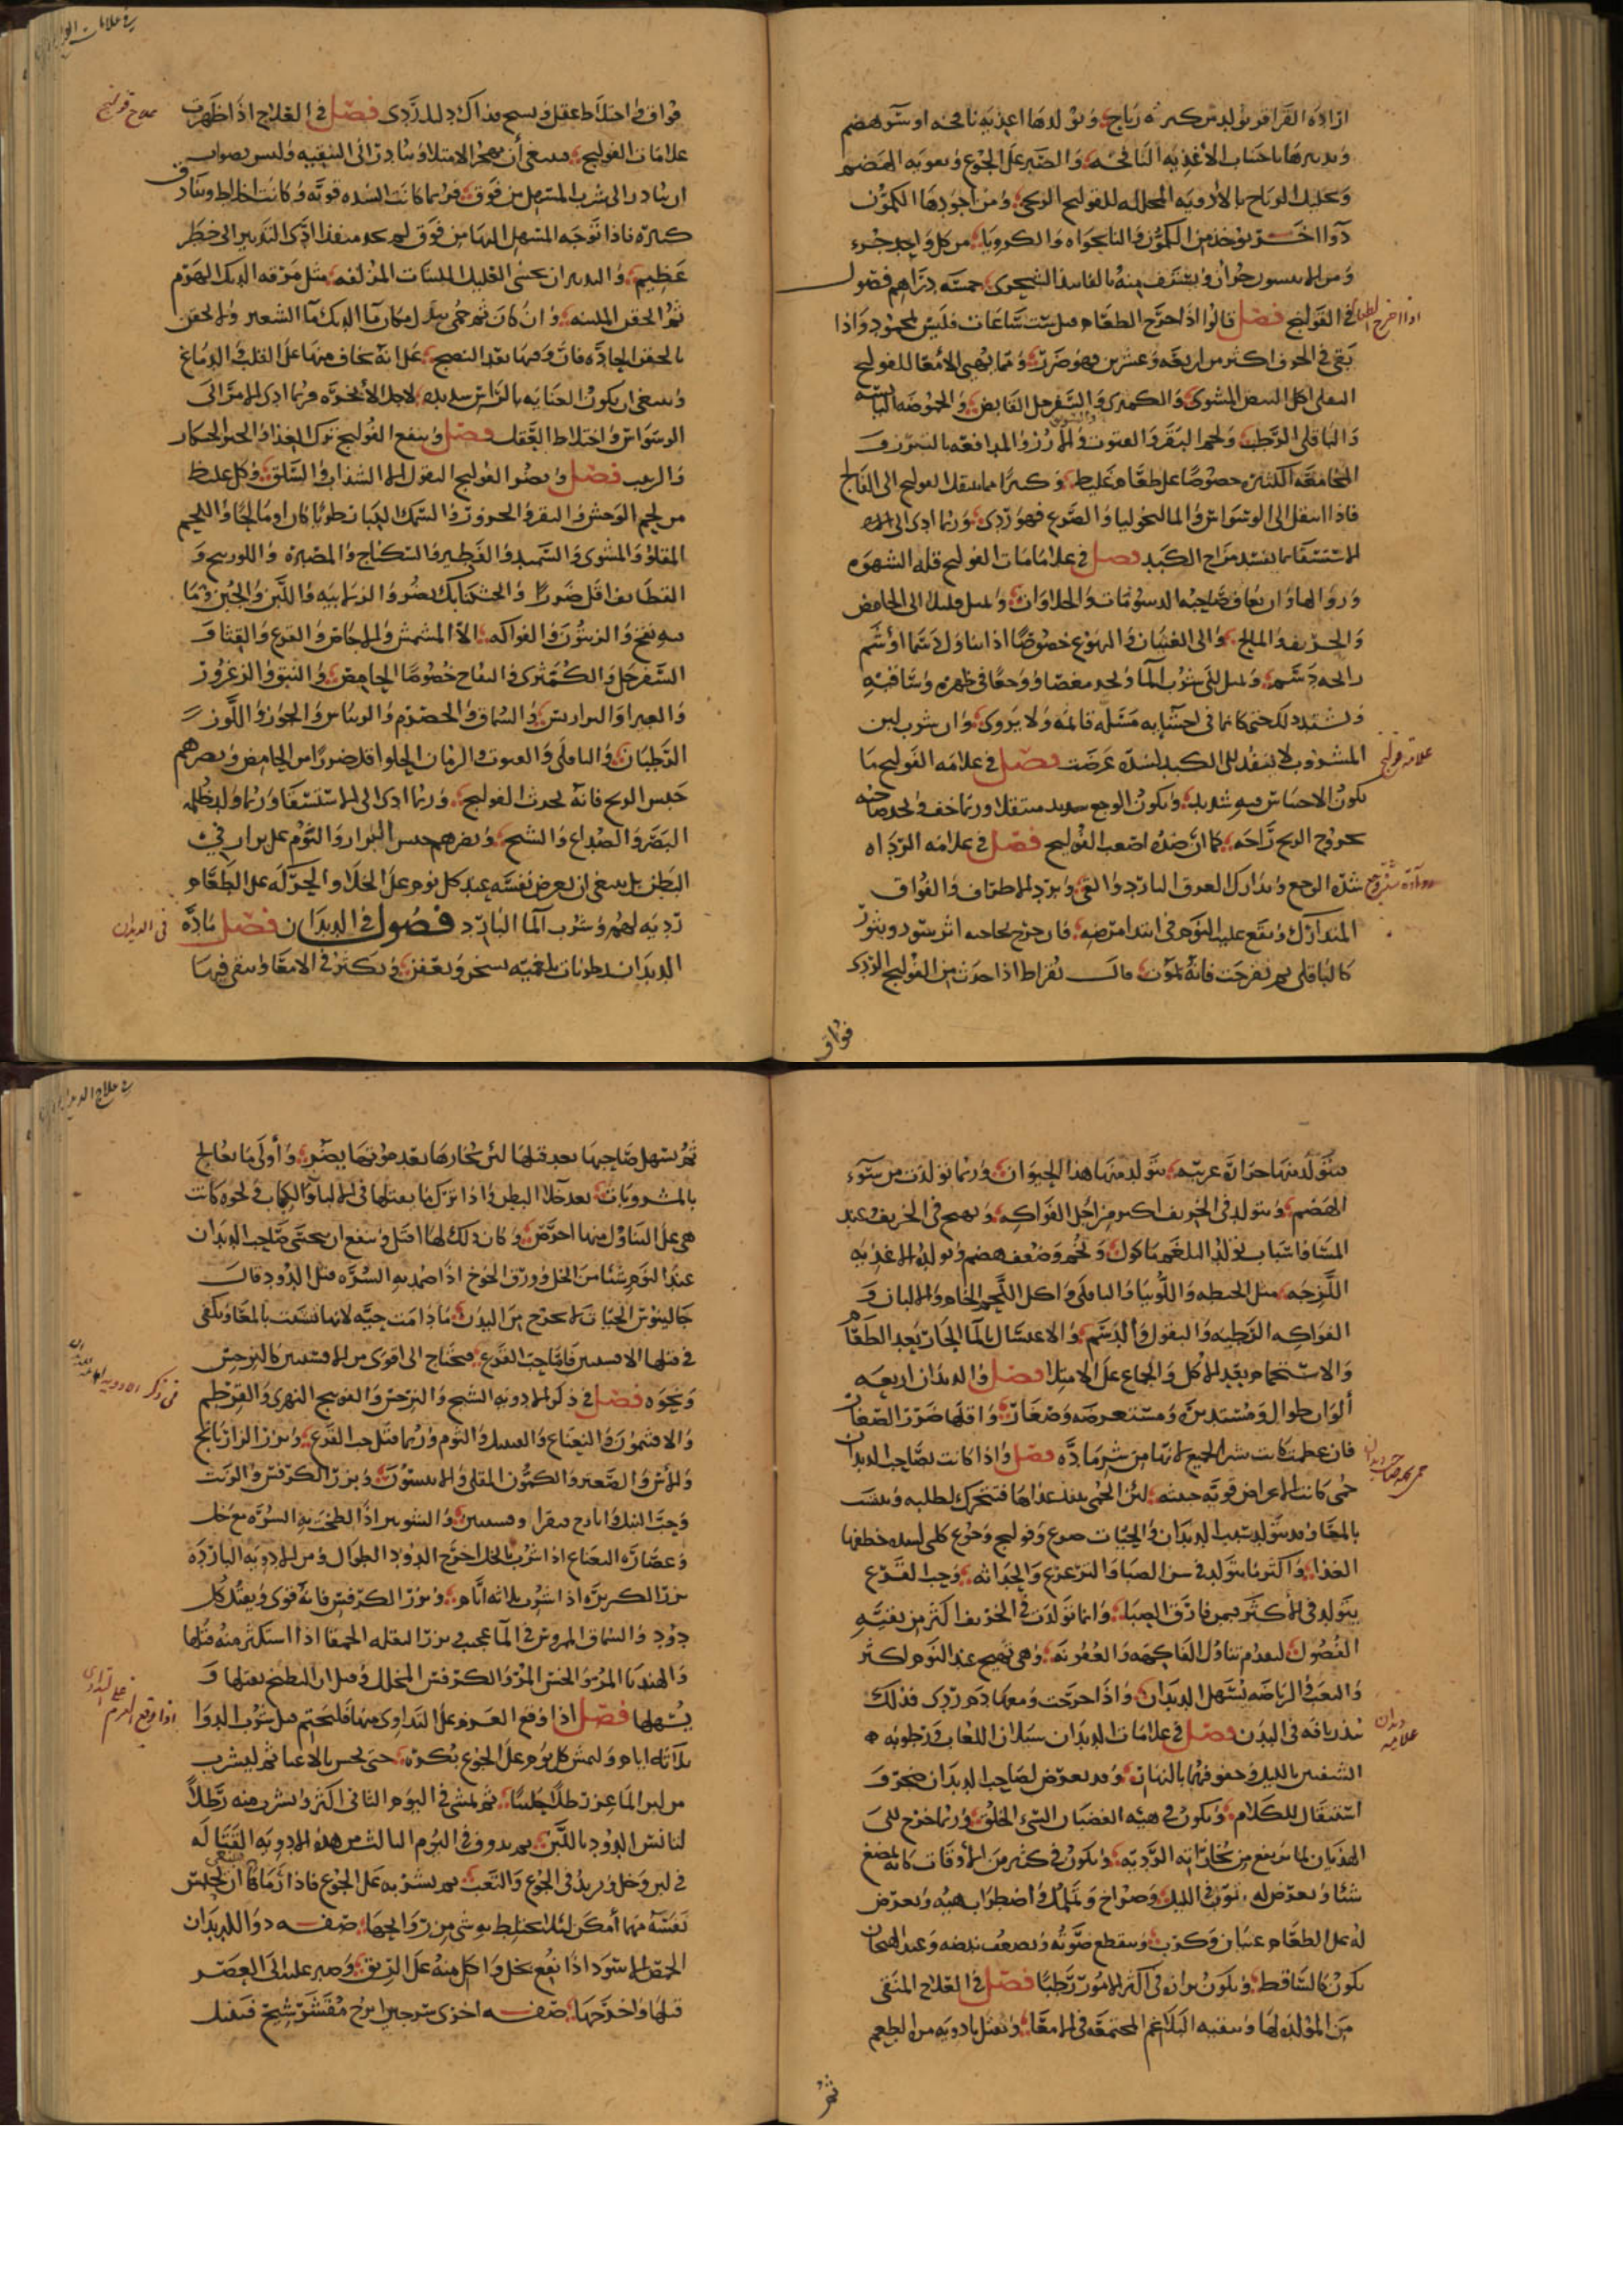 ازاده القراقر تولد من كثرة رياح وتولدها اغذيه نافخه او سوء هضم
وتدبيرها باجتناب الأغذيه النافخه والصبر على الجوع وتقويه الهضم
وتحليل الرياح بالأدويه المحلله للقولنج الريحى ومن اجودها الكمون
دوا اخر يوخذ من الكمون والنانخواه والكرويا من كل واحد جزء
ومن الانيسون جزان ويستف منه بالفانيد الشجرى خمسه دراهم فصول
فى القولنج فصل قالوا اذا خرج الطعام قبل ست ساعات فليس بمحمود واذا
بقى فى الجوف اكثر من اربعه وعشرين فهو ضرر ومما يهيى الامعا للقولنج
الثفلى اكل البيض المشوى والكمثرى والسفرجل القابض والحموضه اليابسه
والباقلى الرطب ولحم البقر والارز والمدافعه بالتبرز و
المجامعه الكثيره خصوصا على طعام غليظ وكثيرا ما ينتقل القولنج الى الفالج
فاذا انتقل الى الوسواس والمالنخوليا والصرع فهو ردى وربما ادى الى
الاستسقا بما يفسد مزاج الكبد فصل فى علامات القولنج قله الشهوه
وزوالها وان يعاف صاحبه الدسومات والحلاوات والميل قليلا الى الحامض
والحريف والمالح والى الغثيان والتهوع خصوصا اذا تناول دسما او شم
رايحه دسم ويميل الى شرب الما ويجد مغصا ووجعا فى ظهره وساقيه
ويشتد ذلك حتى كانما فى احشايه مسله قايمه ولا يروى وان شرب لين
المشروب لا ينفذ الى الكبد لسده عرضت فصل فى علامه القولنج ما
يكون الاحتباس فيه شديد ويكون الوجع شديد متنقلا وربما خف ويجد صاحبه
بخروج الريح راحه كما ان ضده اصعب القولنج فصل فى علامه الرداه
شده الوجع وتدارك العرق البارد والقى وبرد الاطراف والفواق
المتدارك ويقع عليه النوم فى ابتدا مرضه فان خرج بحاجبه اثر سود وبثور
كالباقلى ثم تقرحت فانه يموت قال بقراط اذا حدث من القولنج الردى
فواق
اذا خرج الطعام
علامه قولنج
علاج قولنج
فواق واختلاط عقل وتشنج فذاك دليل ردى فصل فى العلاج اذا ظهرت
علامات القولنج فينبغى أن يهجر الامتلا ويبادر الى التنقيه وليس بصواب
ان يبادر الى شرب المسهل من فوق فربما كانت السده قويه وكانت اخلاط وبنادق
كثيره فاذا توجه المسهل اليها من فوق لم يجد منفذا ادى التدبير الى خطر
عظيم والتدبير ان يحسى القليل الملينات المزلقه مثل مرقه الديك الهرم
ثم الحقن الملينه وان كان ثم حمى بدل مكان ما الديك ما الشعير والحقن
بالحقن الحاده فان وفيها بعد النضج على انه يخاف منها على القلب والدماغ
وينبغى ان يكون العنايه بالراس شديده لاجل الأبخره فربما ادى الامر الى
الوسواس واختلاط العقل فصل وينفع القولنج ترك الغذا والخبز الخشكار
والزبيب فصل ويضر القولنج البقول الا السذاب والسلق وكل غليظ
من لحم الوحش والبقر والجزور والسمك كان رطبا كان او مالحا واللحم
المقلو والمشوى والسميد والفطير والسكباج والمضيره واللوزينج و
القطايف اقل ضررا والخشكنانك يضر والزلابيه واللبن والجبن وما
فيه نفخ والزيتون والفواكه الا المشمش والاجاص والقرع والقثا و
السفرجل والكمثرى والتفاح خصوصا الحامض والنبق والزعرور
والغبيرا والسماق والحصرم والريباس والجوز واللوز
الرطبان والباقلى والرمان الحلو اقل ضررا من الحامض ويضرهم
حبس الريح فانه يحدث القولنج وربما ادى الى الاستسقا وربما ولد ظلمه
البصر والصداع والتشنج ويضرهم حبس البراز والنوم على براز فى
البطن بل ينبغى ان يعرض نفسه عند كل نوم على الخلا والحركه على الطعام
رديه لهم وشرب الما البارد فصول فى الديدان فصل ماده
الديدان رطوبات بلغميه تسخن وتعفن وتكثر فى الامعا وتبقى فيها
فى الديدان
فيتولد منها حراره غريبه يتولد منها هذا الحيوان وربما تولدت من سوء
الهضم ويتولد فى الخريف اكثر من اجل الفواكه وتهيج فى الخريف عند
المسا واسباب تولد البلغم ماكول وتخم وضعف هضم وتولد الاغذيه
اللزجه مثل الحنطه واللوبيا والباقلى واكل اللحم الخام والالبان و
الفواكه الرطبه والبقول والدسم والاغتسال بالما الحار بعد الطعام
والاستحمام بعد الاكل والجماع على الامتلا فصل والديدان اربعه
ألوان طوال ومستديره ومستعرضه وصغار واقلها ضررا الصغار
فان عظمت كانت شر الجميع لانها من شر ماده فصل واذا كانت بصاحب الديدان
حمى كانت الاعراض قويه خبيثه لان الحمى تنفد غذاها فتتحرك لطلبه وتتشبث
بالمعا وقد يتولد بسبب الديدان والحيات صرع وقولنج وجوع كلبى لشده خطفها
الغذا واكثر ما يتولد فى سن الصبا والترعرع والحداثه وحب القرع
يتولد فى الأكثر فيمن فارق الصبا وانما تولدت فى الخريف اكثر من بقيه
الفصول لتقدم تناول الفاكهه والعفونه وهى تهيج عند النوم اكثر
والتعب والرياضه تسهل الديدان واذا خرجت ومعها دم ردى فذلك
ينذر بافه فى البدن فصل فى علامات الديدان سيلان اللعاب ورطوبه
الشفتين بالليل وجفوفهما بالنهار وقد يعرض لصاحب الديدان ضجر و
استثقال للكلام ويكون فى هيئه الغضبان السىء الخلق وربما خرج الى
الهذيان لما يرتفع من بخاراته الرديه ويكون فى كثير من الأوقات كانه يمضغ
شئا ويعرض له توثب فى الليل وصراخ وتململ واضطراب هيئه ويعرض
له على الطعام غثيان وكرب وينقطع صوته ويضعف نبضه وعند الهيجان
يكون كالساقط ويكون برازه فى اكثر الامور رطبا فصل فى العلاج المنقى
من المولده لها وتنقيه البلاغم المجتمعه فى الامعا وتقتل بادويه من الطعم
ثم
علامه ديدان
ثم تسهل صاحبها بعد قتلها لئن بخارها بعد موتها يضر وأولى ما يعالج
بالمشروبات بعد خلا البطن واذا ترك ما يقتلها فى الالبان والكباب ونحوه كانت
هى على التناول منها احرص وكان ذلك لها اقتل وينفع ان يتحسى صاحب الديدان
عند النوم شيئا من الخل وورق الخوخ اذا ضمد به السره قتل الدود قال
جالينوس الحيات لا تخرج من البدن ما دامت حيه لانها تتشبث بالمعا ويكفى
فى قتلها الافسنتين فاما حب القرع فيحتاج الى اقوى من الافسنتين كالترمس
ونحوه فصل فى ذكر الادويه الشيح والترمس والفوتنج النهرى والقرطم
والافتيمون والنعناع والقنبيل والثوم وربما قتل حب القرع وبزر الرازيانج
والأس والصعتر والكمون المقلى والانيسون وبزر الكرفس والزيت
وحب النيل والشونيز اذا لطخت به السره مع خل
وعصاره النعناع اذا شرب بالخل اخرج الدود الطوال ومن الادويه البارده
بزر الكزبره اذا شرب ثلاثه ايام وبزر الكرفس فانه قوى ويقتل كل
دود والسماق المروس فى الما عجيب بزر البقله الحمقا اذا استكثر منه قتلها
والهندبا المر والخس المر والكرفس المخلل وقيل ان البطيخ يقتلها و
يسهلها فصل اذا وقع العزم على التداوى منها فليحتم قبل شرب الدوا
ثلاثه ايام وليمش كل يوم على الجوع بكره حتى يحس بالاعيا ثم ليشرب
من لبن الماعز رطلا حليبا ثم يمشى فى اليوم الثانى اكثر ويشرب منه رطلا
لتانس الدود باللبن ثم يدوف فى اليوم الثالث من هذه الادويه القتاله
فى لبن وخل ويزيد فى الجوع والتعب ثم يشربه على الجوع فاذا
نفسه مهما أمكن لئلا يختلط بوشى من روايحها صفه دوا للديدان
الحمص الاسود اذا نقع بخل واكل منه على الريق وصبر عليه الى العصر
قتلها واخرجها صفه اخرى سرجس ابرنج مقشر شيح قنبيل
فى ذكر الادويه
اذا وقع العزم على التداوى